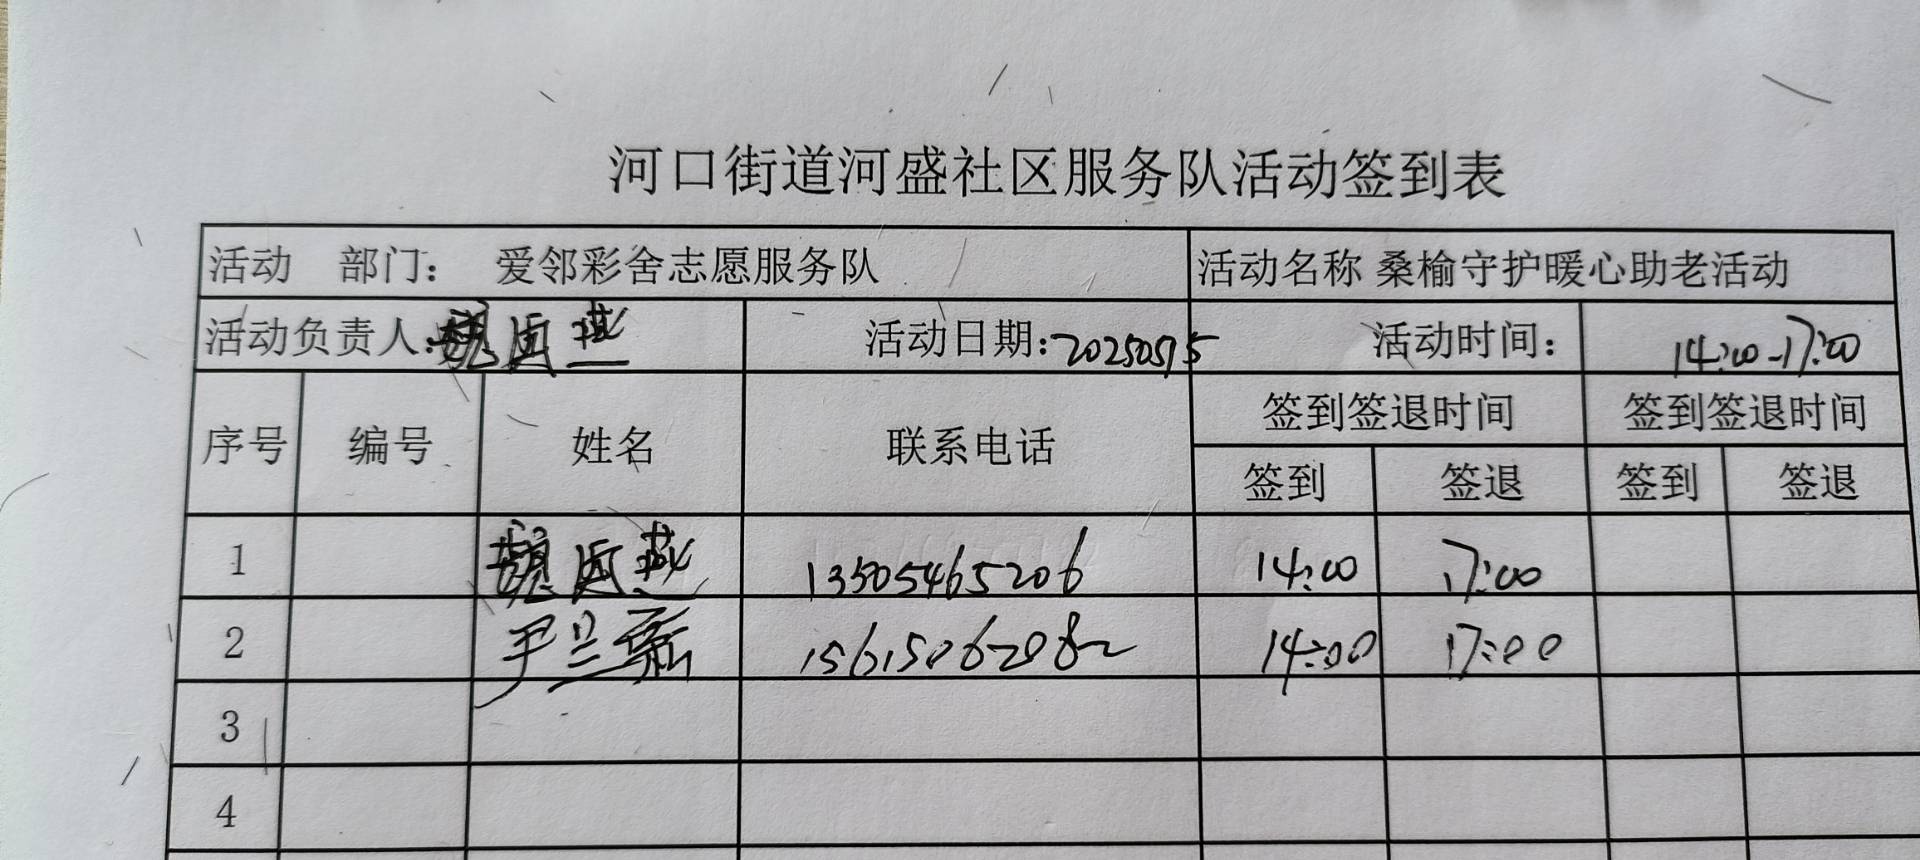 河口街道河盛社区服务队活动签到表
活动 部门： 爱邻彩舍志愿服务队 活动名称 桑榆守护暖心助老活动
活动负责人： 魏 燕 活动日期： 20250515 活动时间： 14:00-17:00
序号 编号 姓名 联系电话 签到签退时间 签到签退时间
签到 签退 签到 签退
1 魏 燕 13505465206 14:00 17:00
2 尹兰 15615062082 14:00 17:00
3
4